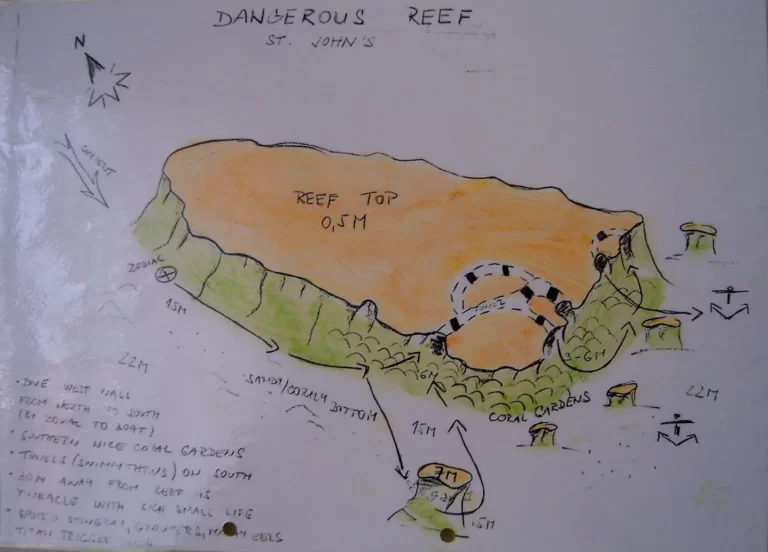 DANGEROUS REEF
ST. JOHN'S
N
CURRENT
REEF TOP
0,5M
ZODIAC
15M
22M
SANDY/CORALY BOTTOM
6M
3-6M
CORAL GARDENS
22M
15M
7M
15M
• DIVE WEST WALL
FROM NORTH TO SOUTH
(BY ZODIAC TO BOAT)
• SOUTHERN NICE CORAL GARDENS
• TUNELS (SWIMMTHINS) ON SOUTH
AWAY FROM REEF IS
PINACLE WITH RICH SMALL LIFE
• SPOTED STINGRAY, GROUPERS, MORAY EELS
TITAN TRIGGER FISH